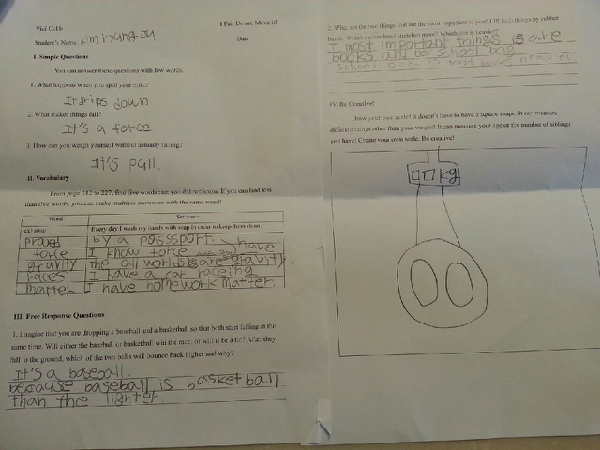 Vici Cobb
I Fall Down, Move id
Student's Name
Date
I. Simple Questions
You can answer these questions with few words.
1. What happens when you spill your milk?
It drips down
2. What makes things fall?
It's a force
3. How can you weigh yourself without actually falling?
It's pull.
II. Vocabulary
From page 212 to 227, find five words that you did not know. If you can find less
than five words, you can make multiple sentences with the same word!
Word
Sentence
Every day I wash my hands with soap in order to keep them clean.
proued
by a possport.
force
I know force have
gravity
the all world are gravity.
races
I have a car raceing
matter
I have homework matter.
III. Free Response Questions
1. Imagine that you are dropping a baseball and a basketball so that both start falling at the
same time. Will either the baseball or basketball win the race, or will it be a tie? After they
fall to the ground, which of the two balls will bounce back higher and why?
It's a baseball.
because baseball is basketball
than the lighter.
2. What are the two things that are the most important to you? Lift both things by rubber
bands. Which rubber band stretches more? Which one is heavier?
I most important things is are
books and school bag
school bag is books heavier
IV. Be Creative!
Draw your own scale! It doesn't have to have a square shape. It can measure
different things other than your weight! It can measure your age or the number of siblings
you have! Create your own scale. Be creative!
kg